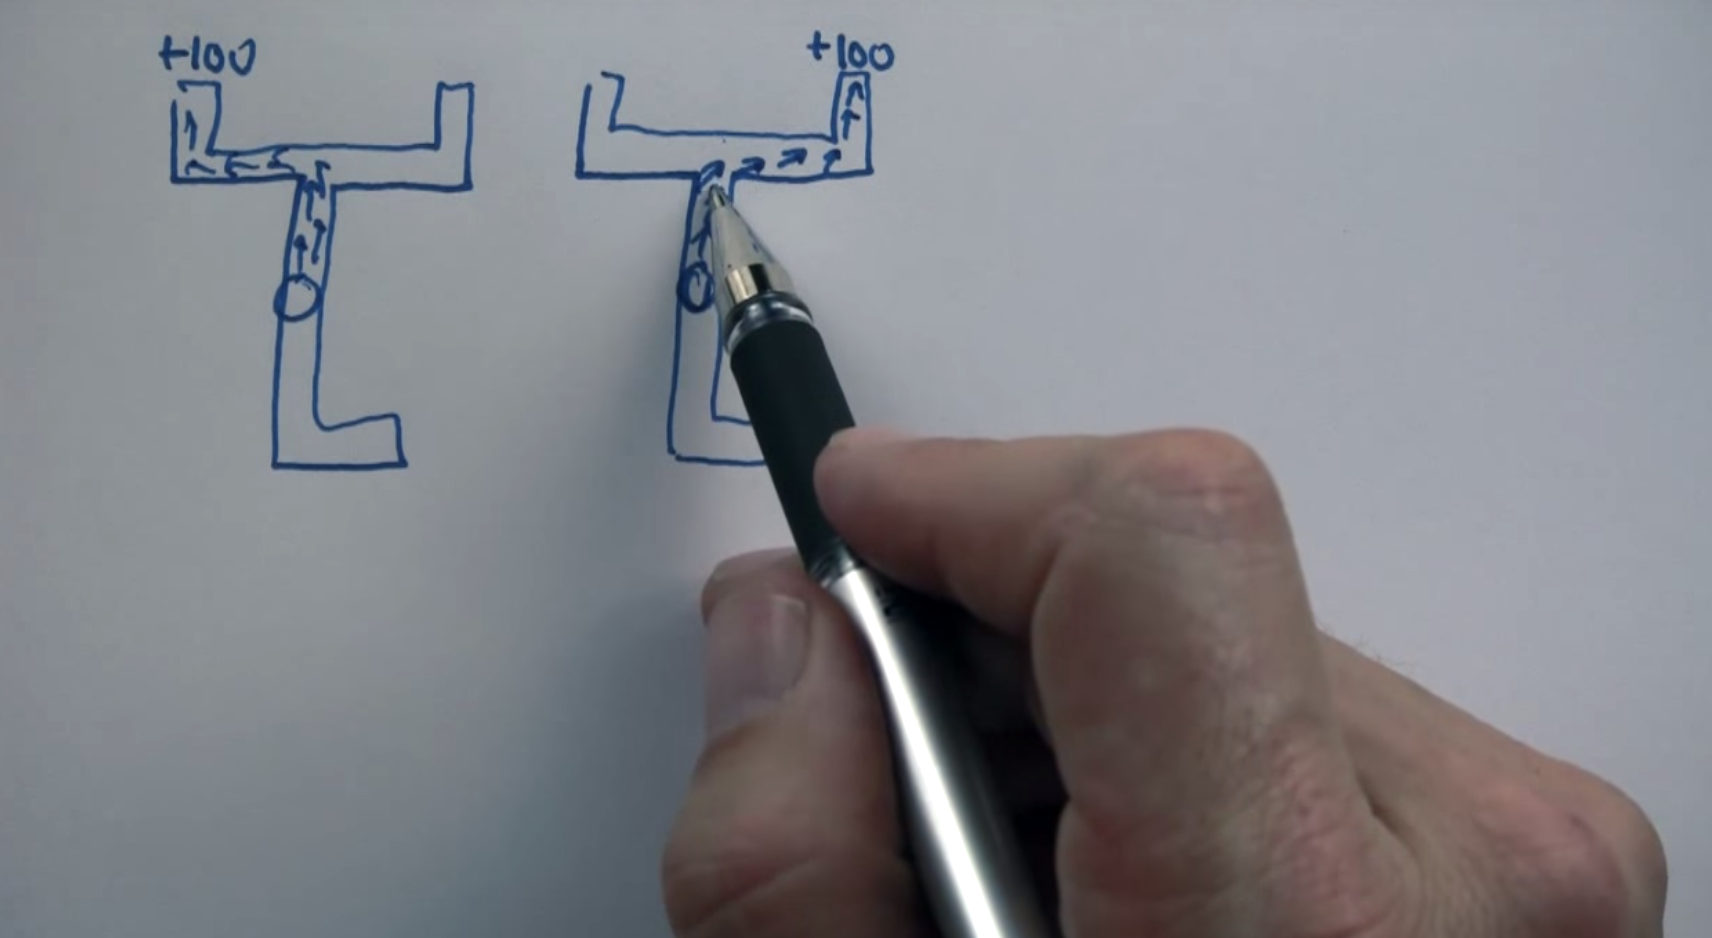 +100
+100